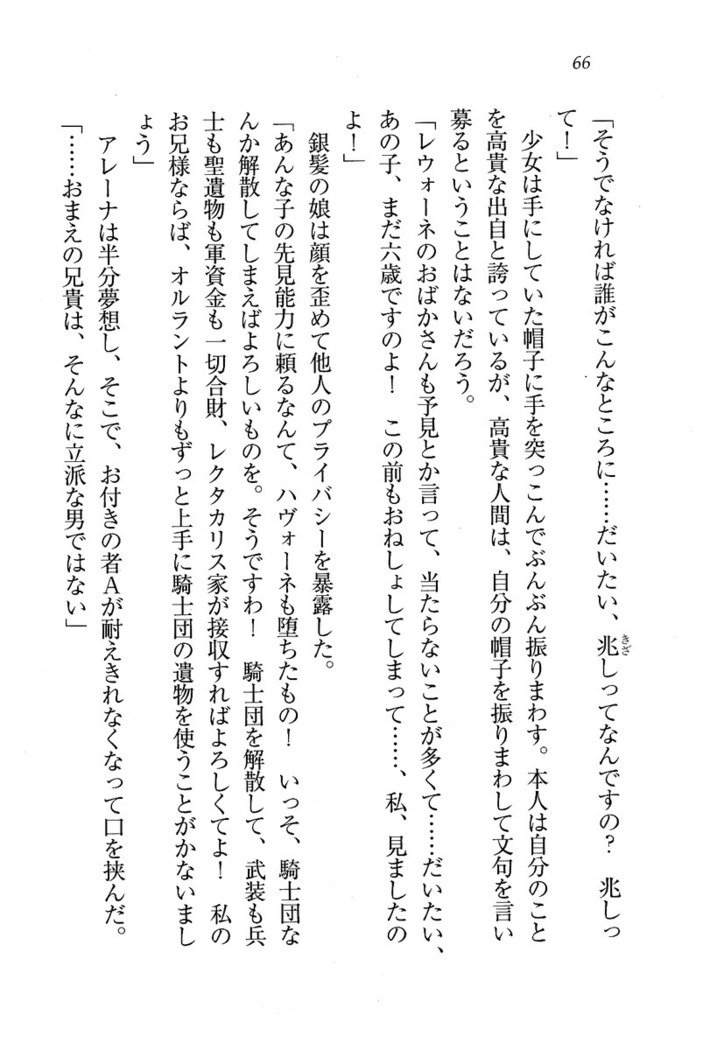 66
「そうでなければ誰がこんなところに……だいたい、兆しってなんですの？　兆しっ
て！」
　少女は手にしていた帽子に手を突っこんでぶんぶん振りまわす。本人は自分のこと
を高貴な出自と誇っているが、高貴な人間は、自分の帽子を振りまわして文句を言い
募るということはないだろう。
「レウォーネのおばかさんも予見とか言って、当たらないことが多くて……だいたい、
あの子、まだ六歳ですのよ！　この前もおねしょしてしまって……、私、見ましたの
よ！」
　銀髪の娘は顔を歪めて他人のプライバシーを暴露した。
「あんな子の先見能力に頼るなんて、ハヴォーネも堕ちたもの！　いっそ、騎士団な
んか解散してしまえばよろしいものを。そうですわ！　騎士団を解散して、武装も兵
士も聖遺物も軍資金も一切合財、レクタカリス家が接収すればよろしくてよ！　私の
お兄様ならば、オルラントよりもずっと上手に騎士団の遺物を使うことがかないまし
ょう」
　アレーナは半分夢想し、そこで、お付きの者Ａが耐えきれなくなって口を挟んだ。
「……おまえの兄貴は、そんなに立派な男ではない」